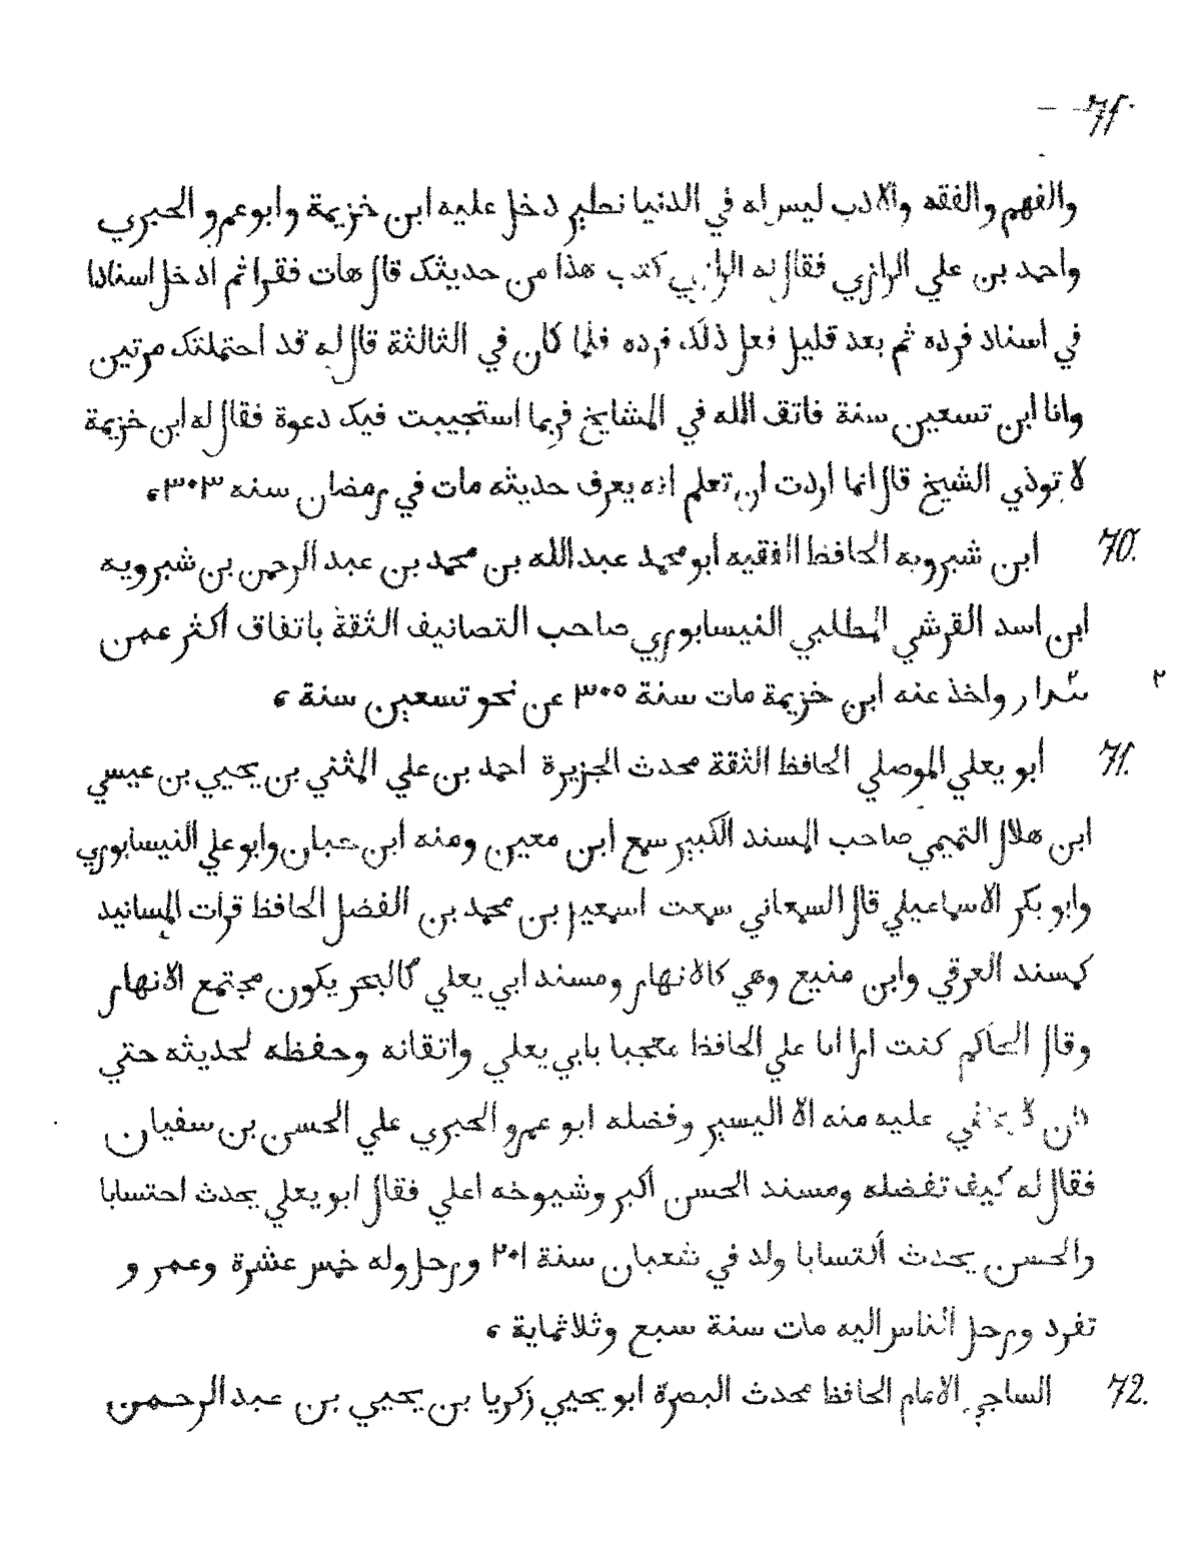 71.
والفهم والفقه والادب ليس له في الدنيا نظير دخل عليه ابن خزيمة وابو عمرو الحبري
واحمد بن علي الرازي فقال له الرازي كتب هذا من حديثك قال هات فقرا ثم ادخل اسنادا
في اسناد فرده ثم بعد قليل فعل ذلك فرده فلما كان في الثالثة قال له قد احتملتك مرتين
وانا ابن تسعين سنة فاتق الله في المشايخ فربما استجيبت فيك دعوة فقال له ابن خزيمة
لا توذي الشيخ قال انما اردت ان تعلم انه يعرف حديثه مات في رمضان سنه ٣٠٣،
70. ابن شبرويه الحافظ الفقيه ابو محمد عبد الله بن محمد بن عبد الرحمن بن شبرويه
ابن اسد القرشي المطلبي النيسابوري صاحب التصانيف الثقة باتفاق أكثر عمن
٢ واخذ عنه ابن خزيمة مات سنة ٣٠٥ عن نحو تسعين سنة ،
71. أبو يعلي الموصلي الحافظ الثقة محدث الجزيرة احمد بن علي المثني بن يحيي بن عيسي
ابن هلال التميمي صاحب المسند الكبير سمع ابن معين ومنه ابن حبان وابو علي النيسابوري
وابو بكر الاسماعيلي قال السمعاني سمعت اسمعيل بن محمد بن الفضل الحافظ قرات المسانيد
كمسند العرقي وابن منيع وهي كالانهار ومسند ابي يعلي كالبحر يكون مجتمع الانهار
وقال الحاكم كنت ارا ابا علي الحافظ معجبا بابي يعلي واتقانه وحفظه لحديثه حتي
لا يخفي عليه منه الا اليسير وفضله ابو عمرو الحبري علي الحسن بن سفيان
فقال له كيف تفضله ومسند الحسن أكبر وشيوخه اعلي فقال ابو يعلي يحدث احتسابا
والحسن يحدث ألتسابا ولد في شعبان سنة ٢٠١ ورحل وله خمس عشرة وعمر و
تفرد ورحل الناس اليه مات سنة سبع وثلاثماية ،
72. الساجي الامام الحافظ محدث البصرة ابو يحيي زكريا بن يحيي بن عبد الرحمن